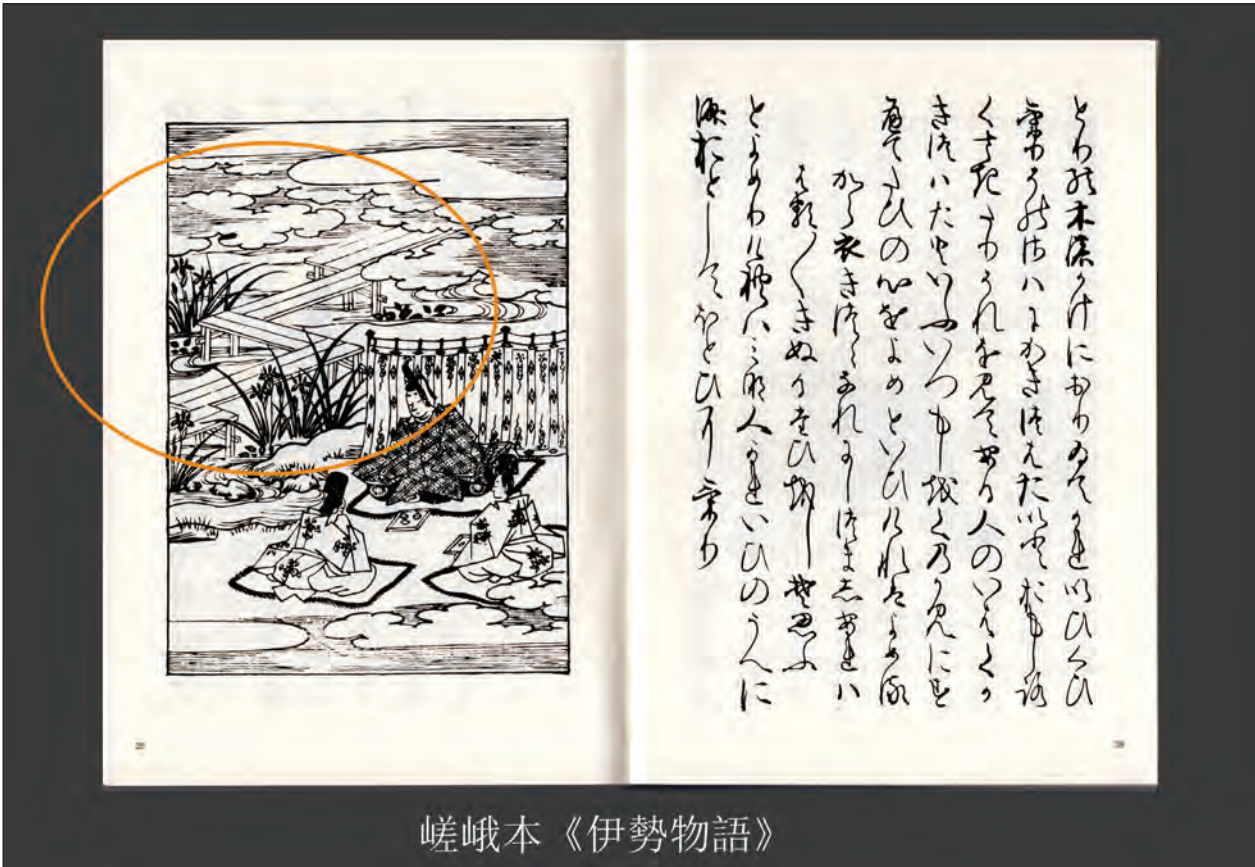 とりの木のかけにおりゐてかれいひくひ
けりそのさはにかきつはたいとおもしろ
くさきたりそれを見てある人のいはくか
きつはたといふいつもしをくのかみにす
へてたひの心をよめといひけれはよめる
から衣きつゝなれにしつましあれは
はる〱きぬるたひをしそ思ふ
とよめりけれはみな人かれいひのうへに
涙おとしてほとひにけり
38
嵯峨本《伊勢物語》